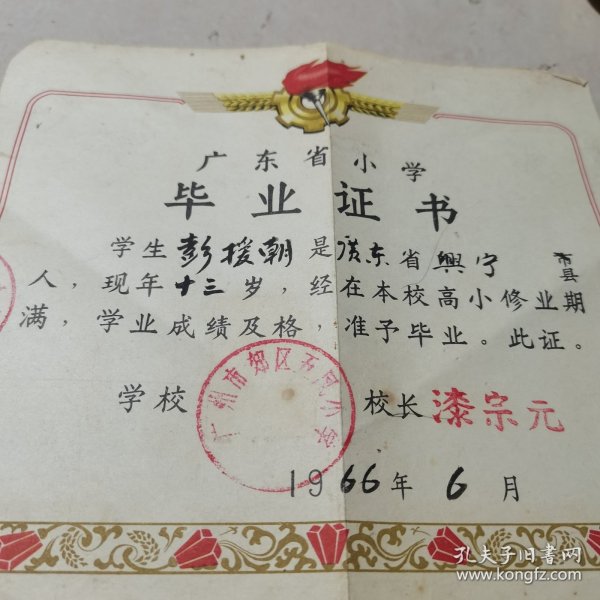 广东省小学
毕业证书
学生彭援朝是广东省興宁市县
人，现年十三岁，经在本校高小修业期
满，学业成绩及格，准予毕业。此证。
学校
广州市郊区五凤小学
校长漆宗元
1966年6月
孔夫子旧书网
www.kongfz.com